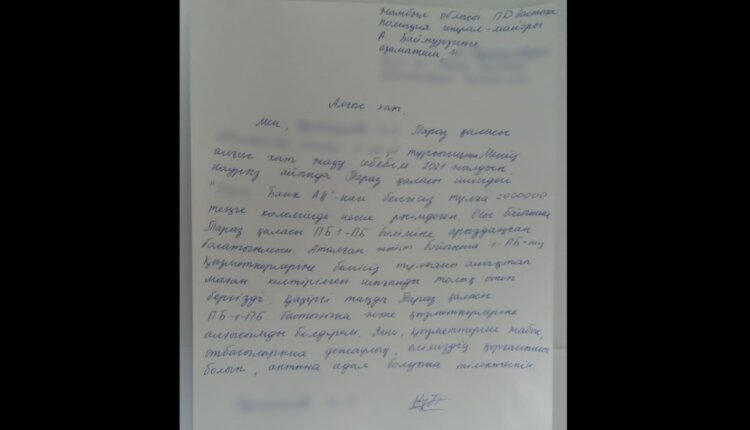 Жамбыл облысы ПД бастығы
полиция генерал-майоры
А Баймурзине
азаматша,
Алғыс хат.
Мен, Тараз қаласы
тұрғынымын Менің
алғыс хат жазу себебім 2021 жылдың
наурыз айында Тараз қаласы ішіндегі
" Банк АҚ"-нан белгісіз тұлға 2000000
теңге көлемінде несие рәсімдеген. Осы бойынша
Тараз қаласы ПБ 1-ПБ бөліміне арызданған
болатынмын. Аталған бойынша 1-ПБ-нің
қызметкерлеріне белгісіз тұлғаны анықтап
маған келтірілген шығынды толық өтеп
бергізді. Қазіргі таңда Тараз қаласы
ПБ-1-ПБ бастығына және қызметкерлеріне
алғысымды білдірем. Яғни, қызметтеріне табыс,
отбасыларына денсаулық, еліміздің қорғанышы
болып, антына адал болуына тілектеспін.